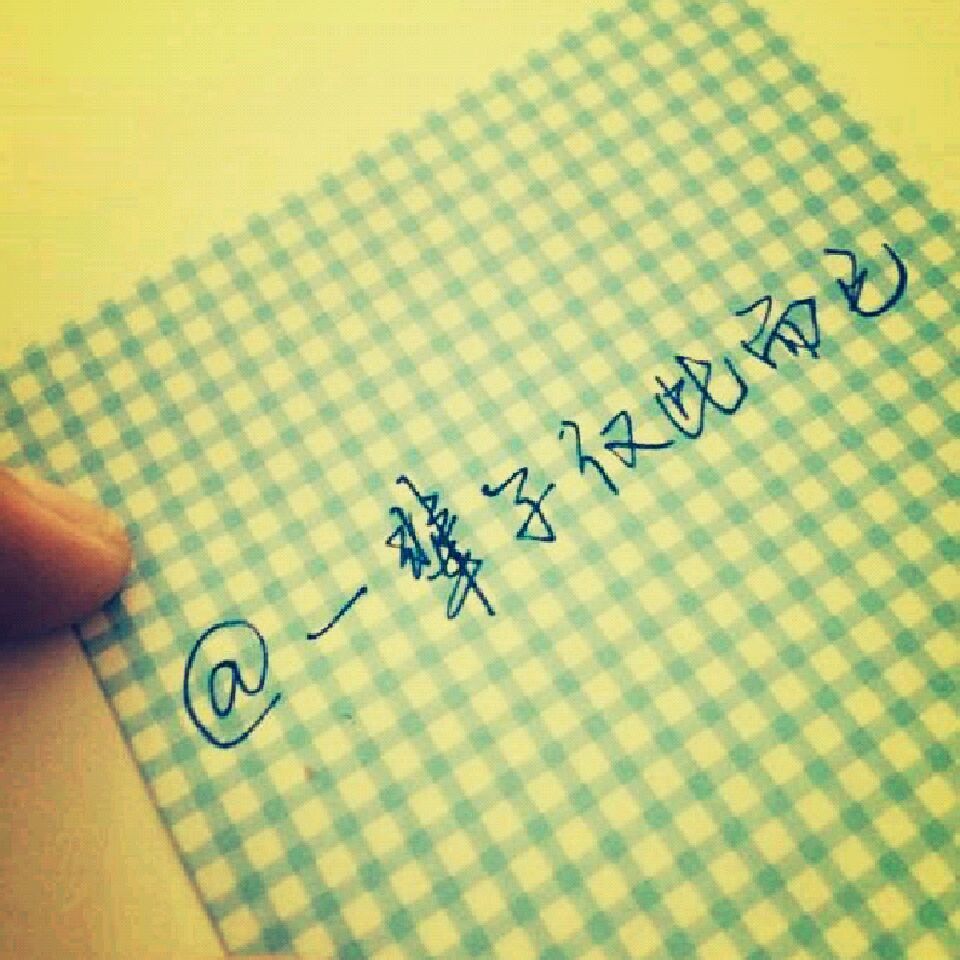 @一辈子仅此而已